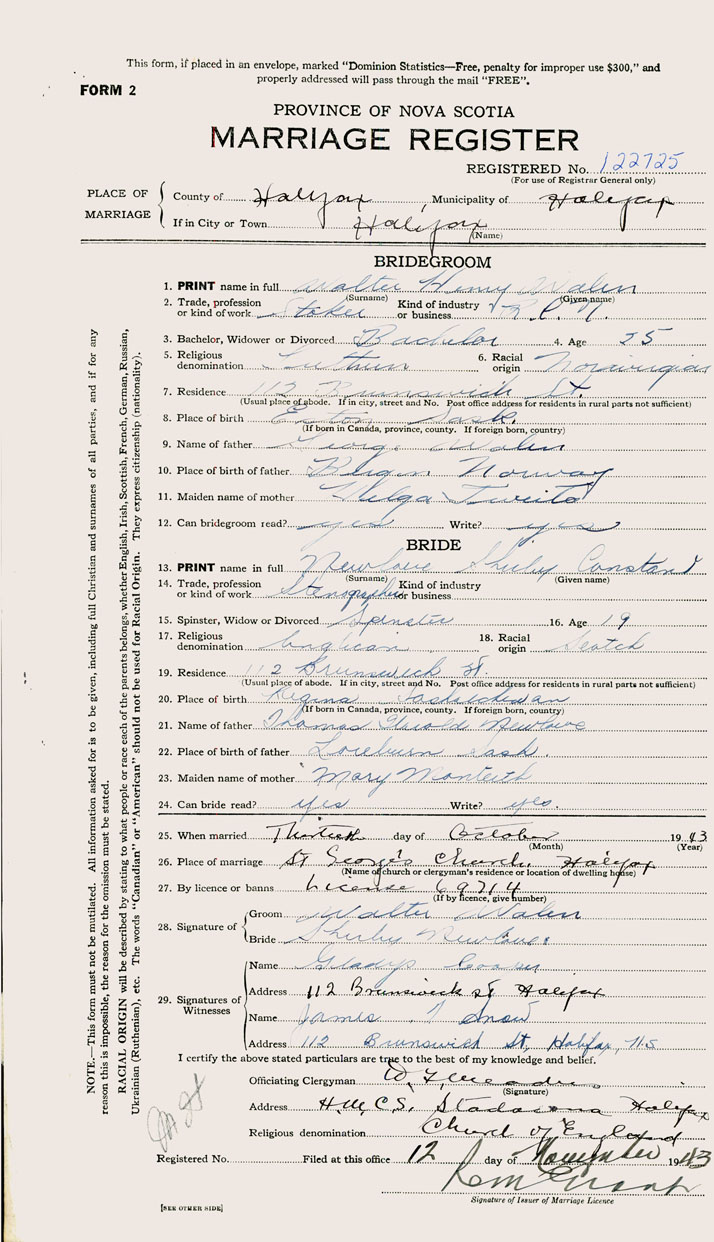 This form, if placed in an envelope, marked "Dominion Statistics—Free, penalty for improper use $300," and
properly addressed will pass through the mail "FREE".
FORM 2
PROVINCE OF NOVA SCOTIA
MARRIAGE REGISTER
REGISTERED No. 122725
(For use of Registrar General only)
PLACE OF MARRIAGE
County of Halifax, Municipality of Halifax
If in City or Town Halifax
(Name)
BRIDEGROOM
1. PRINT name in full Walter Henry Walen
(Surname) (Given name)
2. Trade, profession or kind of work Stoker Kind of industry or business
3. Bachelor, Widower or Divorced Bachelor 4. Age 25
5. Religious denomination 6. Racial origin
7. Residence 112 Brunswick St.
(Usual place of abode. If in city, street and No. Post office address for residents in rural parts not sufficient)
8. Place of birth Sask.
(If born in Canada, province, county. If foreign born, country)
9. Name of father George Walen
10. Place of birth of father Norway
11. Maiden name of mother Helga
12. Can bridegroom read? yes Write? yes
BRIDE
13. PRINT name in full Newlove Shirley
(Surname) (Given name)
14. Trade, profession or kind of work Stenographer Kind of industry or business
15. Spinster, Widow or Divorced Spinster 16. Age 19
17. Religious denomination Anglican 18. Racial origin Scotch
19. Residence 112 Brunswick St
(Usual place of abode. If in city, street and No. Post office address for residents in rural parts not sufficient)
20. Place of birth Regina Saskatchewan
(If born in Canada, province, county. If foreign born, country)
21. Name of father Thomas Harold Newlove
22. Place of birth of father Loreburn Sask.
23. Maiden name of mother Mary Monteith
24. Can bride read? yes Write? yes.
25. When married Thirtieth day of October 1943
(Month) (Year)
26. Place of marriage St George's Church, Halifax
(Name of church or clergyman's residence or location of dwelling house)
27. By licence or banns License 69714
(If by licence, give number)
28. Signature of
Groom Walter Walen
Bride Shirley Newlove
29. Signatures of Witnesses
Name Gladys
Address 112 Brunswick St Halifax
Name James Snow
Address 112 Brunswick St, Halifax, N.S
I certify the above stated particulars are true to the best of my knowledge and belief.
Officiating Clergyman
(Signature)
Address H.M.C.S. Stadacona Halifax
Religious denomination Church of England
Registered No. Filed at this office 12 day of November 1943
Signature of Issuer of Marriage Licence
[SEE OTHER SIDE]
NOTE.—This form must not be mutilated. All information asked for is to be given, including full Christian and surnames of all parties, and if for any
reason this is impossible, the reason for the omission must be stated.
RACIAL ORIGIN will be described by stating to what people or race each of the parents belongs, whether English, Irish, Scottish, French, German, Russian,
Ukrainian (Ruthenian), etc. The words "Canadian" or "American" should not be used for Racial Origin. They express citizenship (nationality).